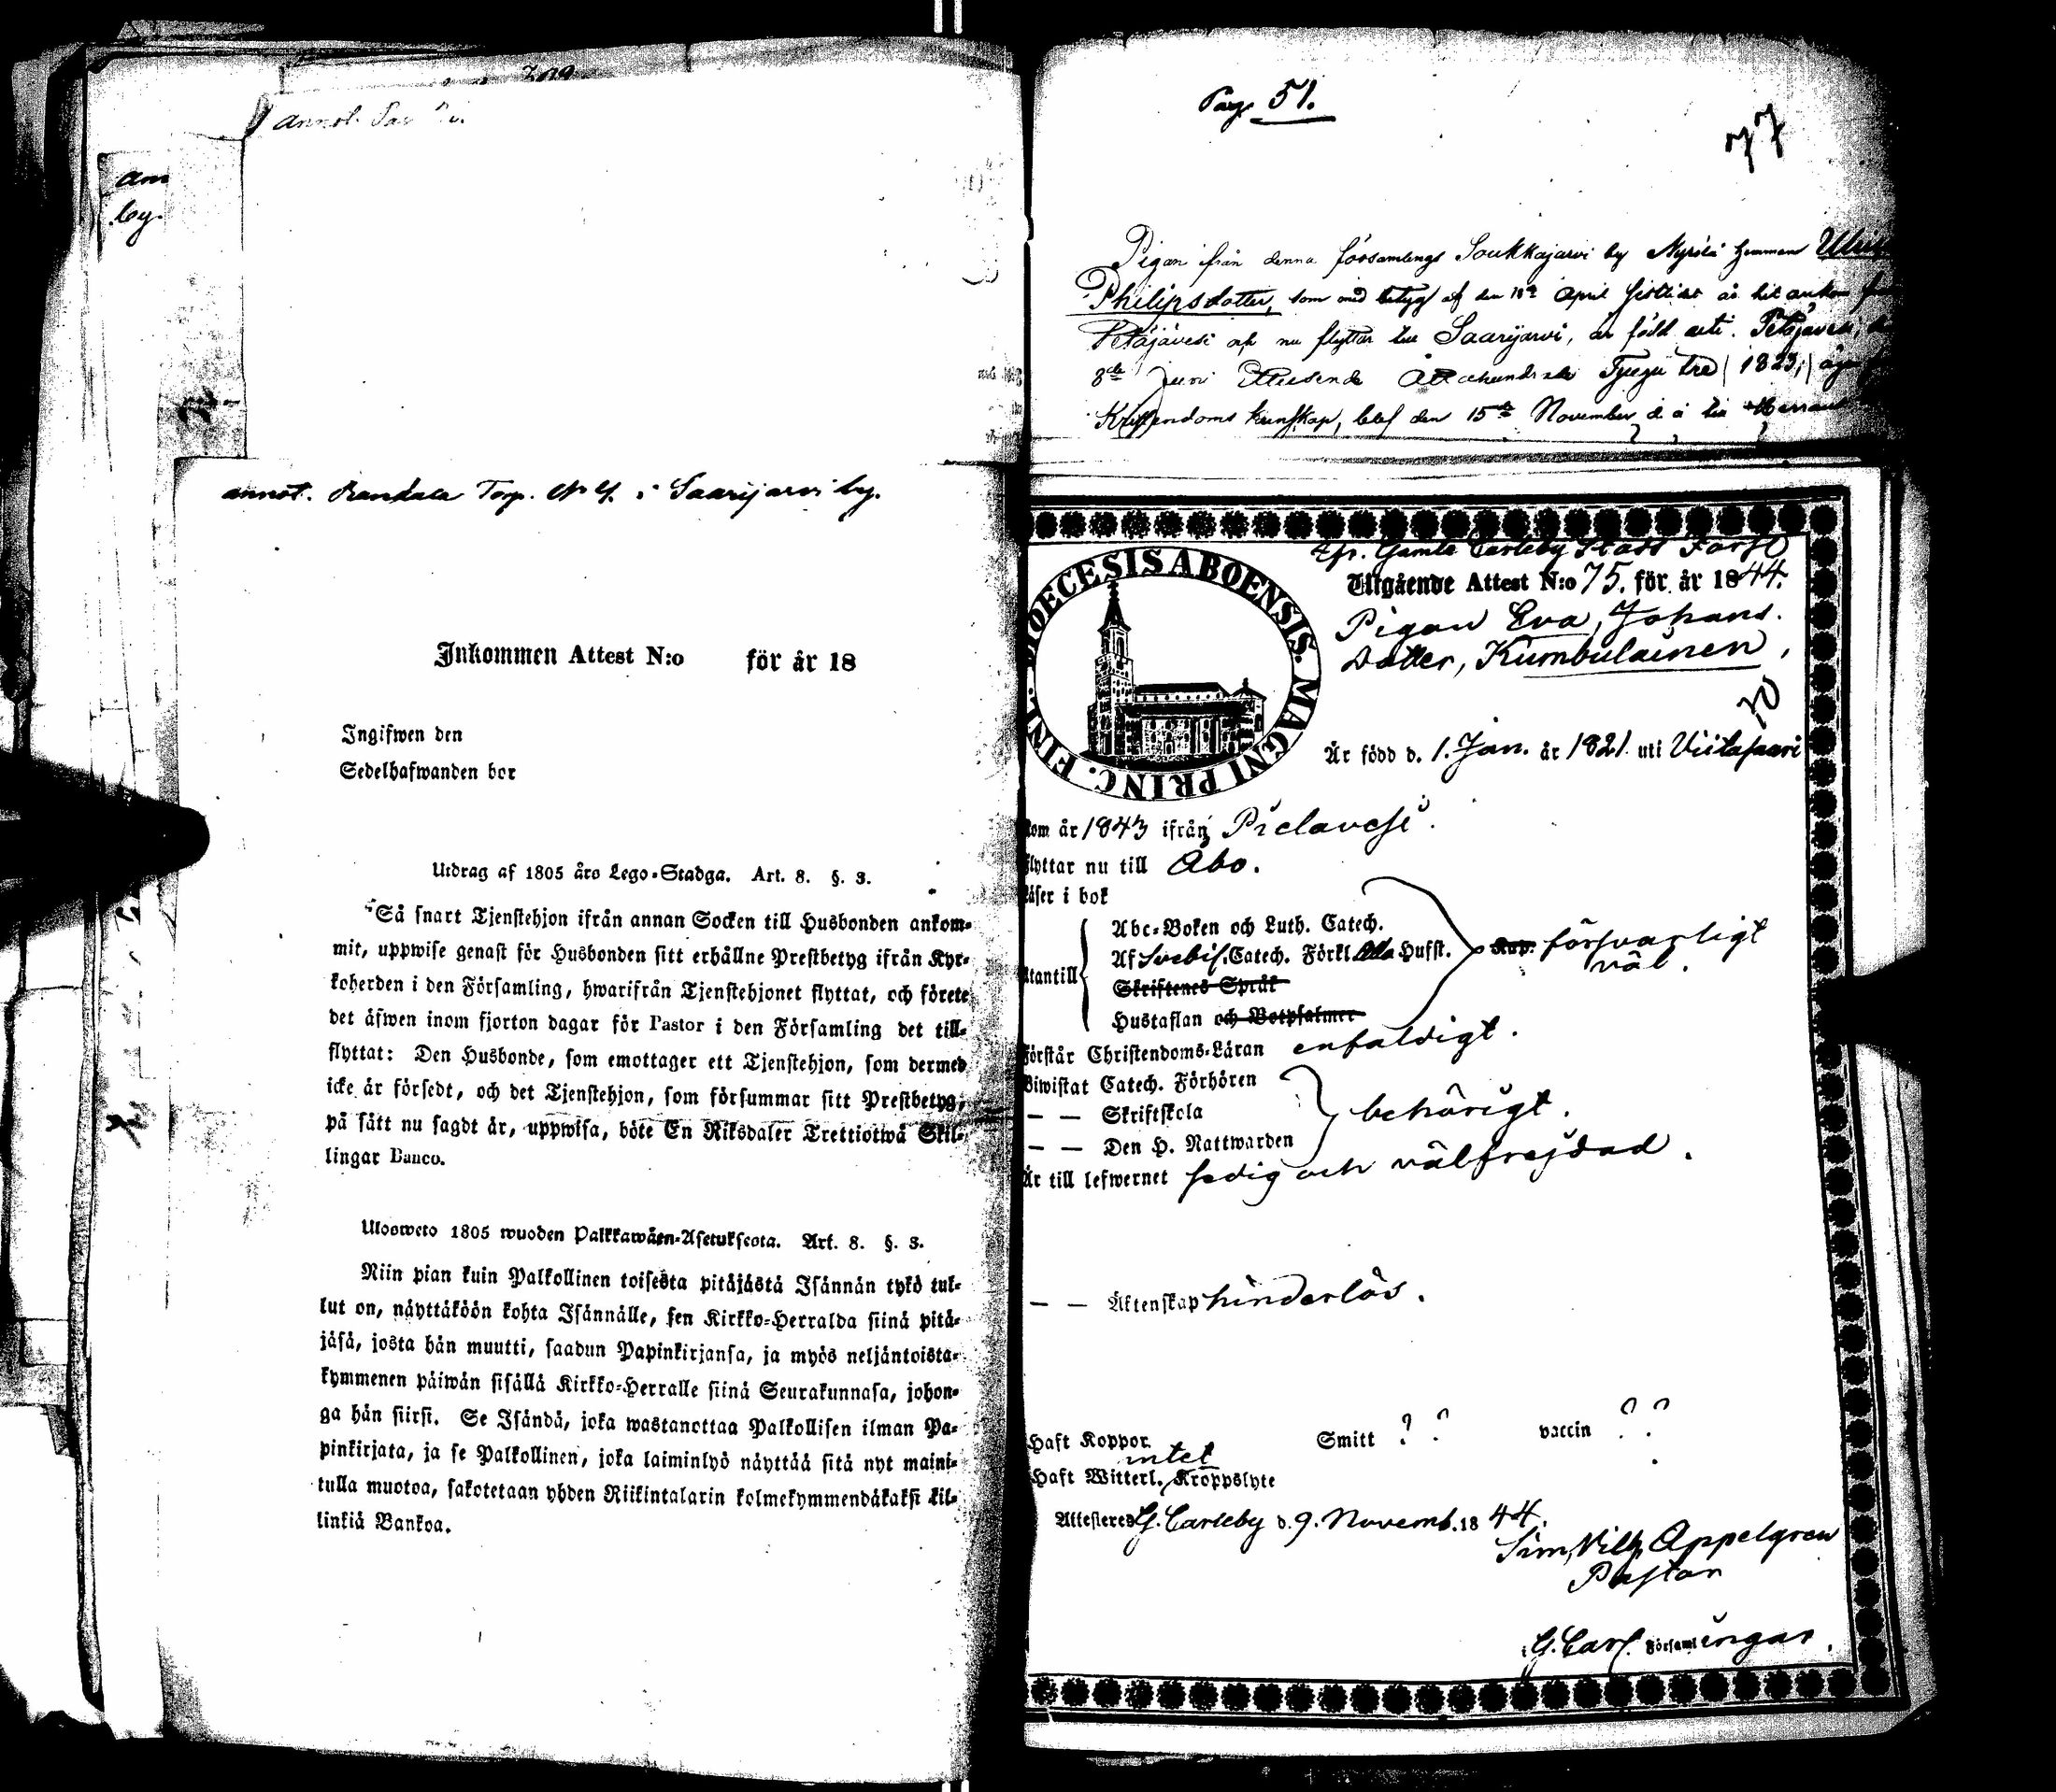 annot.
ann
by.
annot. Randala Torp. No 4. i Saarijärvi by.
Inkommen Attest N:o för år 18
Ingifwen den
Sedelhafwanden bor
Utdrag af 1805 års Lego-Stadga. Art. 8. §. 3.
Så snart Tjenstehjon ifrån annan Socken till Husbonden ankom-
mit, uppwise genast för Husbonden sitt erhållne Prestbetyg ifrån Kyr-
koherden i den Församling, hwarifrån Tjenstehjonet flyttat, och förete
det äfwen inom fjorton dagar för Pastor i den Församling det till-
flyttat: Den Husbonde, som emottager ett Tjenstehjon, som dermed
icke är försedt, och det Tjenstehjon, som försummar sitt Prestbetyg,
på sätt nu sagdt är, uppwisa, böte En Riksdaler Trettiotwå Skil-
lingar Banco.
Ulosweto 1805 wuoden Palkkawäen-Asetuksesta. Art. 8. §. 3.
Niin pian kuin Palkollinen toisesta pitäjästä Isännän tykö tul-
lut on, näyttäköön kohta Isännälle, sen Kirkko-Herralda siinä pitä-
jäsä, josta hän muutti, saadun Papinkirjansa, ja myös neljäntoista-
kymmenen päiwän sisällä Kirkko-Herralle siinä Seurakunnasa, johon-
ga hän siirsi. Se Isändä, joka wastanottaa Palkollisen ilman Pa-
pinkirjata, ja se Palkollinen, joka laiminlyö näyttää sitä nyt maini-
tulla muotoa, sakotetaan yhden Riikintalarin kolmekymmendäkaksi kil-
linkiä Bankoa.
Pag. 51.
77
Pigan ifrån denna församlings Soukkajärvi by Nyrölä hemman
Philipsdotter, som med betyg af den 18de April sistlidet år hit ankom
Petäjävesi och nu flyttar till Saarijärvi, är född uti Petäjävesi,
8de Juni Ettusende Åttahundrade Tjugu tre (1823,) äger
Kristendoms kunskap, blef den 15de November d. å. till
Gamla Carleby Stads Förs.
Utgående Attest N:o 75. för år 1844.
Pigan Eva, Johans.
Dotter, Kumbulainen,
70
Är född d. 1. Jan. år 1821. uti Viitasaari
DIOECESIS ABOENSIS. MAGNI PRINC. FINL.
kom år 1843 ifrån Pielavesi.
flyttar nu till Åbo.
Läser i bok
Abc-Boken och Luth. Catech.
Af Svebil. Catech. Förkl. Alla Hufst. försvarligt
väl.
Utantill
Skriftenes Språk
Hustaflan och Botpsalmer
Förstår Christendoms-Läran enfaldigt.
Biwistat Catech. Förhören
— — Skriftskola behörigt.
— — Den H. Nattwarden
Är till lefwernet sedig och välfrejdad.
— — Äktenskap hinderlös.
Haft Koppor Smitt ? ? vaccin ? ?
intet
Haft Witterl. Kroppslyte
Attesteres G. Carleby d. 9. Novemb. 1844.
Sim. Vilh. Appelgren
Pastor
G. Carl. Församlingar.